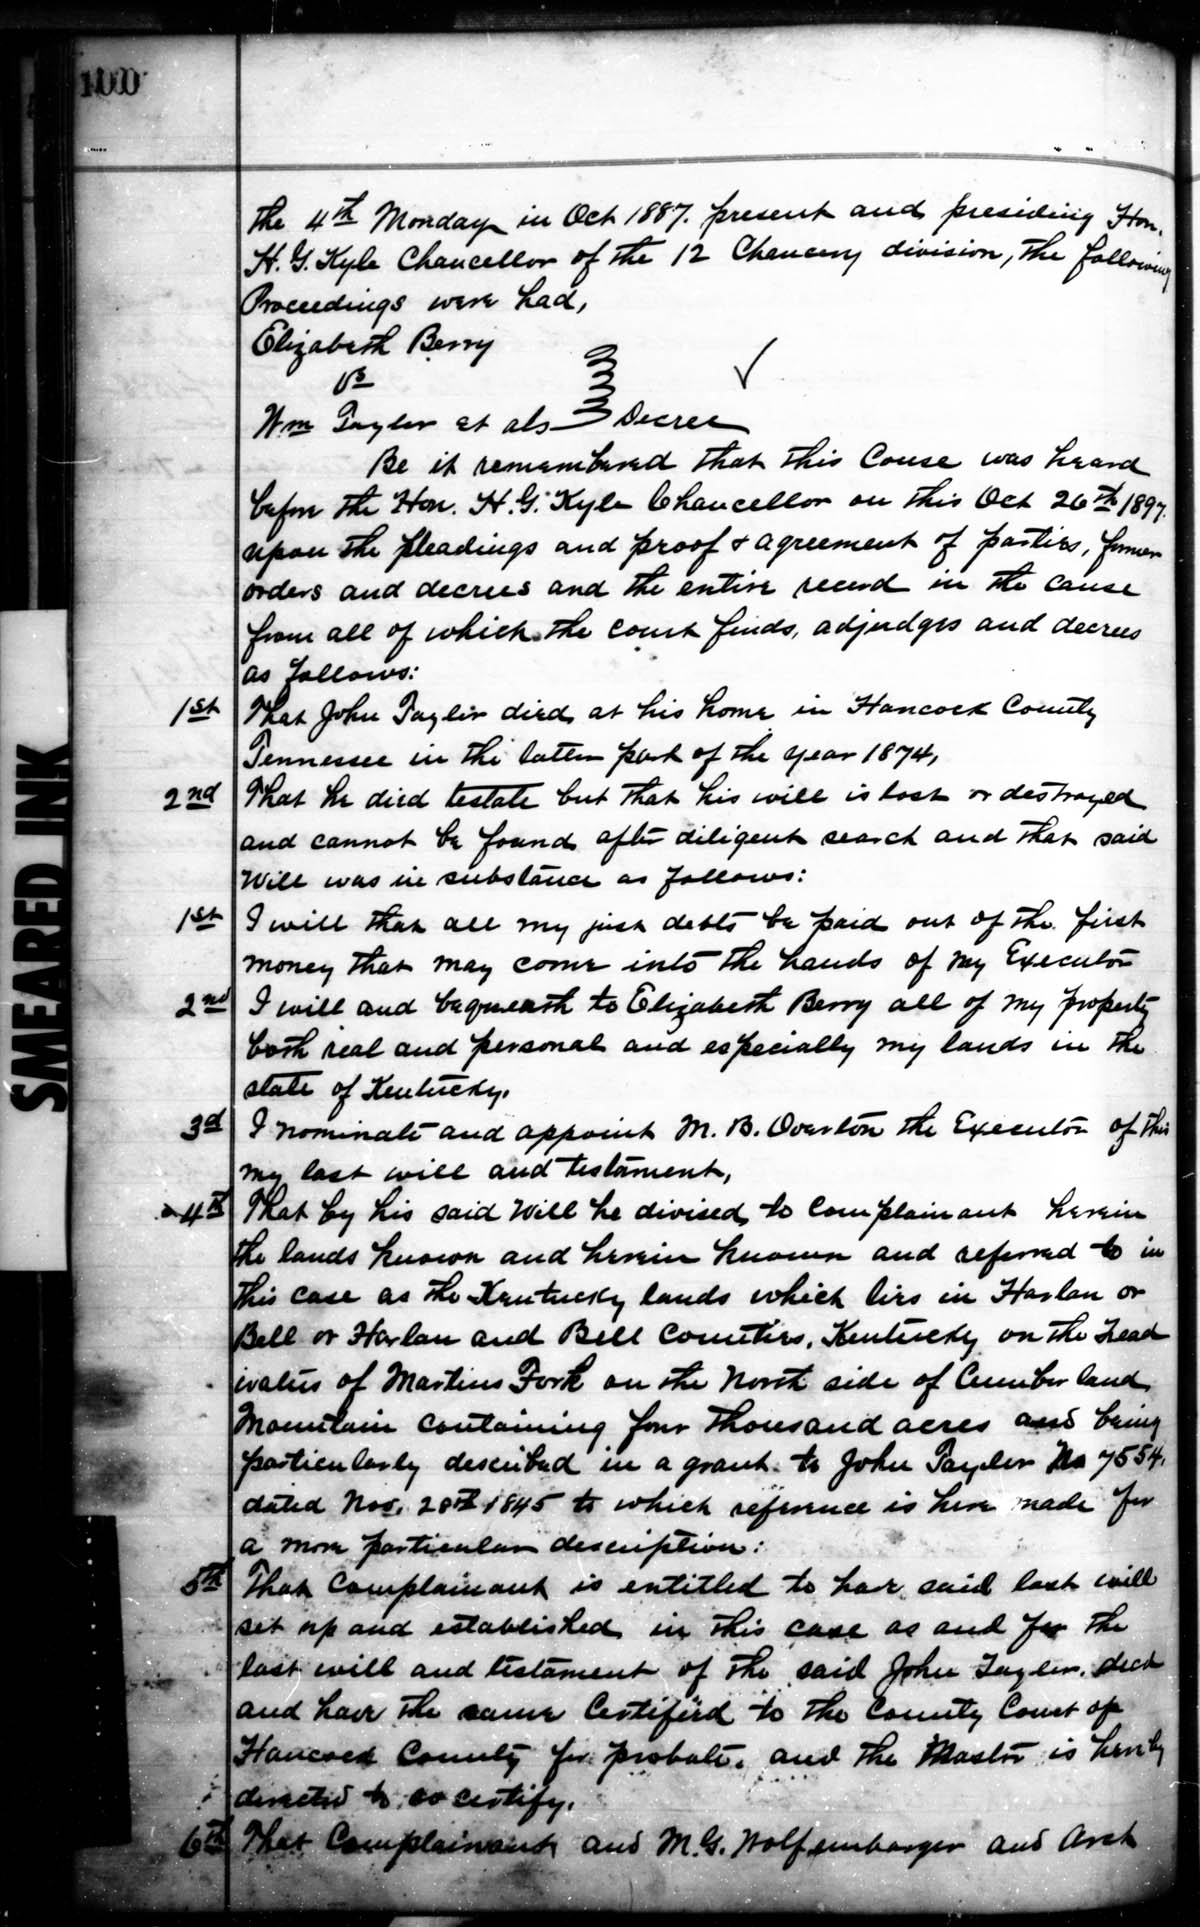 100
the 4th Monday in Oct 1887. present and presiding Hon.
H. G. Kyle Chancellor of the 12 Chancery division, the following
Proceedings were had,
Elizabeth Berry
vs
Wm Taylor et als Decree
Be it remembered that this Couse was heard
before the Hon. H. G. Kyle Chancellor on this Oct 26th 1897.
upon the pleadings and proof & agreement of parties, former
orders and decrees and the entire record in the cause
from all of which the court finds, adjudges and decrees
as follows:
1st That John Taylor died at his home in Hancock County
Tennessee in the latter part of the year 1874,
2nd That he died testate but that his will is lost or destroyed
and cannot be found after diligent search and that said
Will was in substance as follows:
1st I will that all my just debts be paid out of the first
money that may come into the hands of my Executor
2nd I will and bequeath to Elizabeth Berry all of my property
both real and personal and especially my lands in the
state of Kentucky.
3d I nominate and appoint M. B. Overton the Executor of this
my last will and testament,
4th That by his said Will he divised to Complainant herein
the lands known and herein known and referred to in
this case as the Kentucky lands which lies in Harlan or
Bell or Harlan and Bell Counties, Kentucky on the head
waters of Martins Fork on the North side of Cumberland
Mountain containing four thousand acres and being
particularly described in a grant to John Taylor No 7554.
dated Nov. 28th 1845 to which reference is here made for
a more particular description:
5th That Complainant is entitled to have said last will
set up and established in this case as and for the
last will and testament of the said John Taylor, decd
and have the same Certified to the County Court of
Hancock County for probate. and the Master is hereby
directed to so certify.
6th That Complainant and M. G. Wolfenbarger and Arch
SMEARED INK